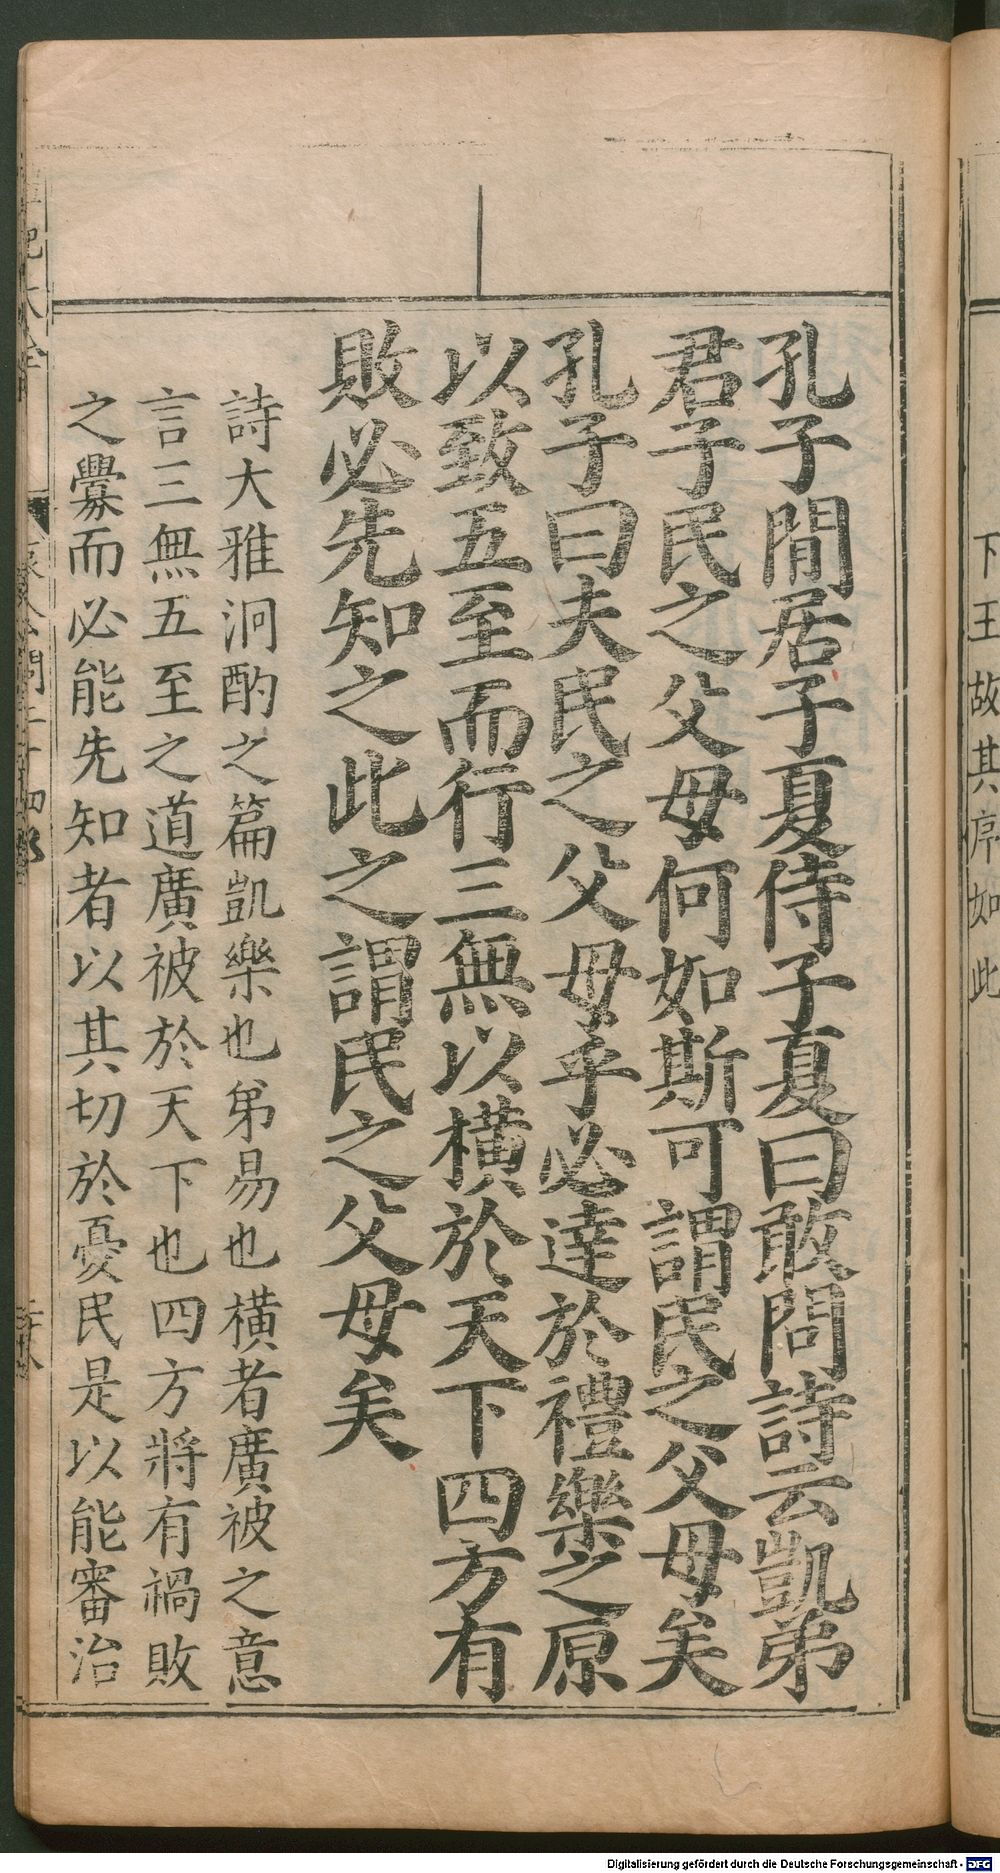 下王故其序如此
孔子閒居子夏侍子夏曰敢問詩云凱弟
君子民之父母何如斯可謂民之父母矣
孔子曰夫民之父母乎必達於禮樂之原
以致五至而行三無以橫於天下四方有
敗必先知之此之謂民之父母矣
詩大雅泂酌之篇凱樂也弟易也橫者廣被之意
言三無五至之道廣被於天下也四方將有禍敗
之釁而必能先知者以其切於憂民是以能審治
Digitalisierung gefördert durch die Deutsche Forschungsgemeinschaft - DFG